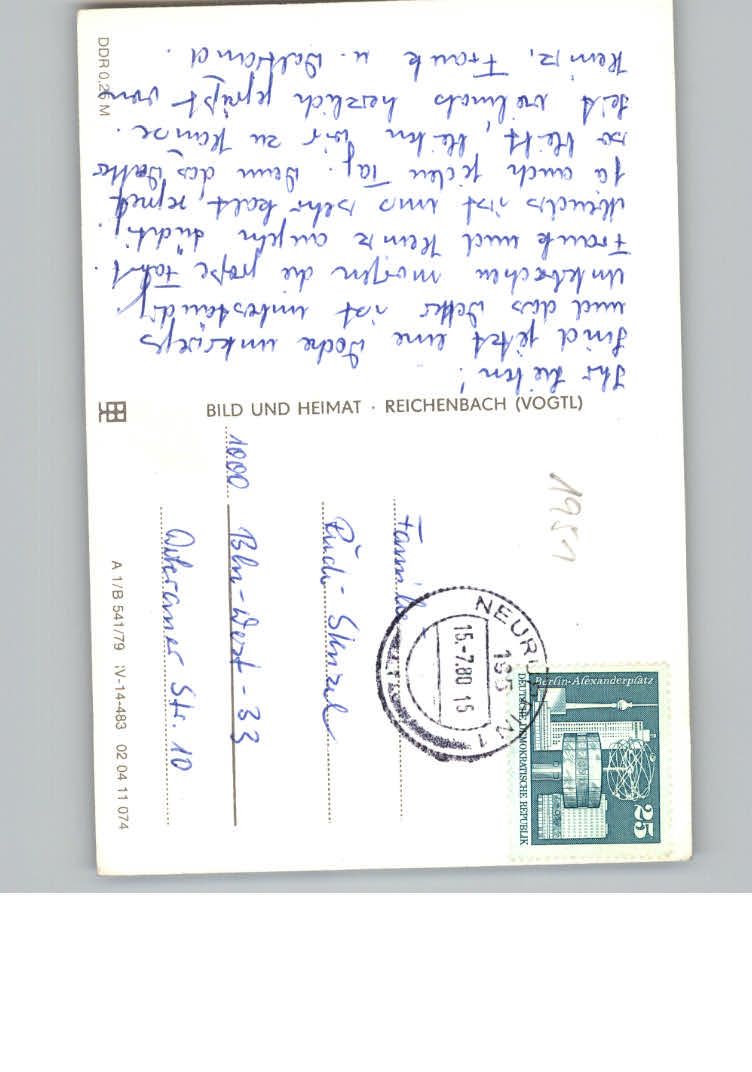 Ihr Lieben!
Sind jetzt eine Woche unterwegs
und das Wetter ist unbeständig.
Unterbrechen morgen die große Fahrt.
Frank und Heinz angeln tüchtig.
Abends ist uns sehr kalt, regnet
ja auch jeden Tag. Wenn das Wetter
so bleibt, bleiben wir zu Hause.
Seid vielmals herzlich gegrüßt von
Heinz, Frank u. Waltraud.
DDR 0,25 M
BILD UND HEIMAT · REICHENBACH (VOGTL)
1951
Familie
Rudi Stenzel
1000 Bln-West-33
Str. 10
A 1/B 541/79 IV-14-483 02 04 11 074
NEURUPPIN 1
195
15.-7.80
Berlin-Alexanderplatz
DEUTSCHE DEMOKRATISCHE REPUBLIK
25